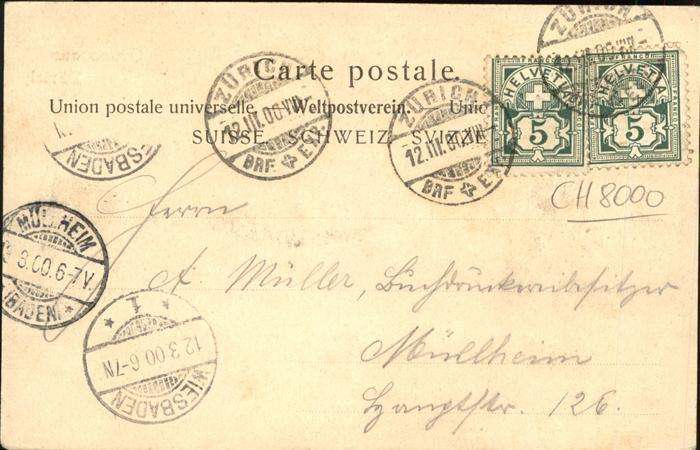 Carte postale.
Union postale universelle. Weltpostverein. Unio
SUISSE SCHWEIZ SVIZ
ZÜRICH
12.III.00.VII
BRF. EXP.
ZÜRICH
12.III.00.VII
BRF. EXP.
ZÜRICH
HELVETIA
5
HELVETIA
5
CH 8000
WIESBADEN
MÜLLHEIM
3.00.6-7V.
(BADEN)
1
12.3.00.6-7N
WIESBADEN
Herrn
A. Müller, Buchdruckereibesitzer
Müllheim
Hauptstr. 126.